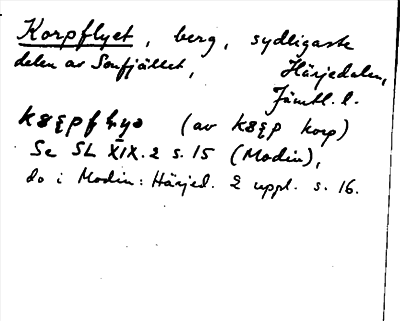 Korpflyet, berg, sydligaste
delen av Sonfjället, Härjedalen,
Jämtl. l.
(av korp)
Se SL XIX. 2 s. 15 (Modin),
do i Modin: Härjed. 2 uppl. s. 16.